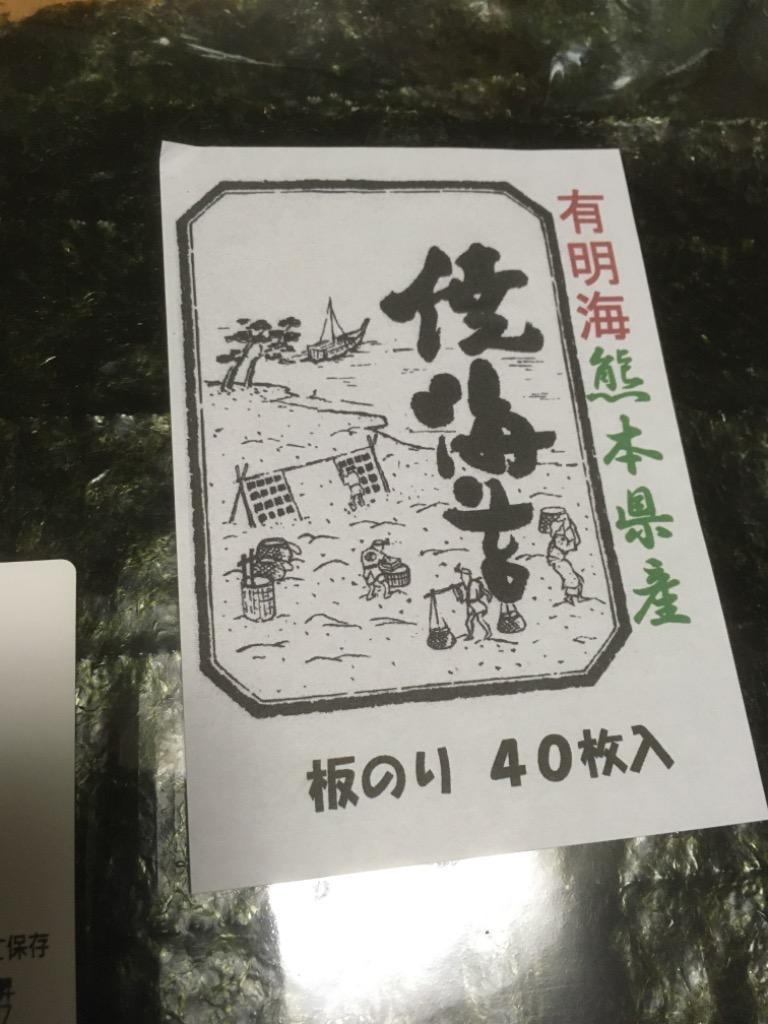 有明海熊本県産
焼海苔
板のり 40枚入
保存